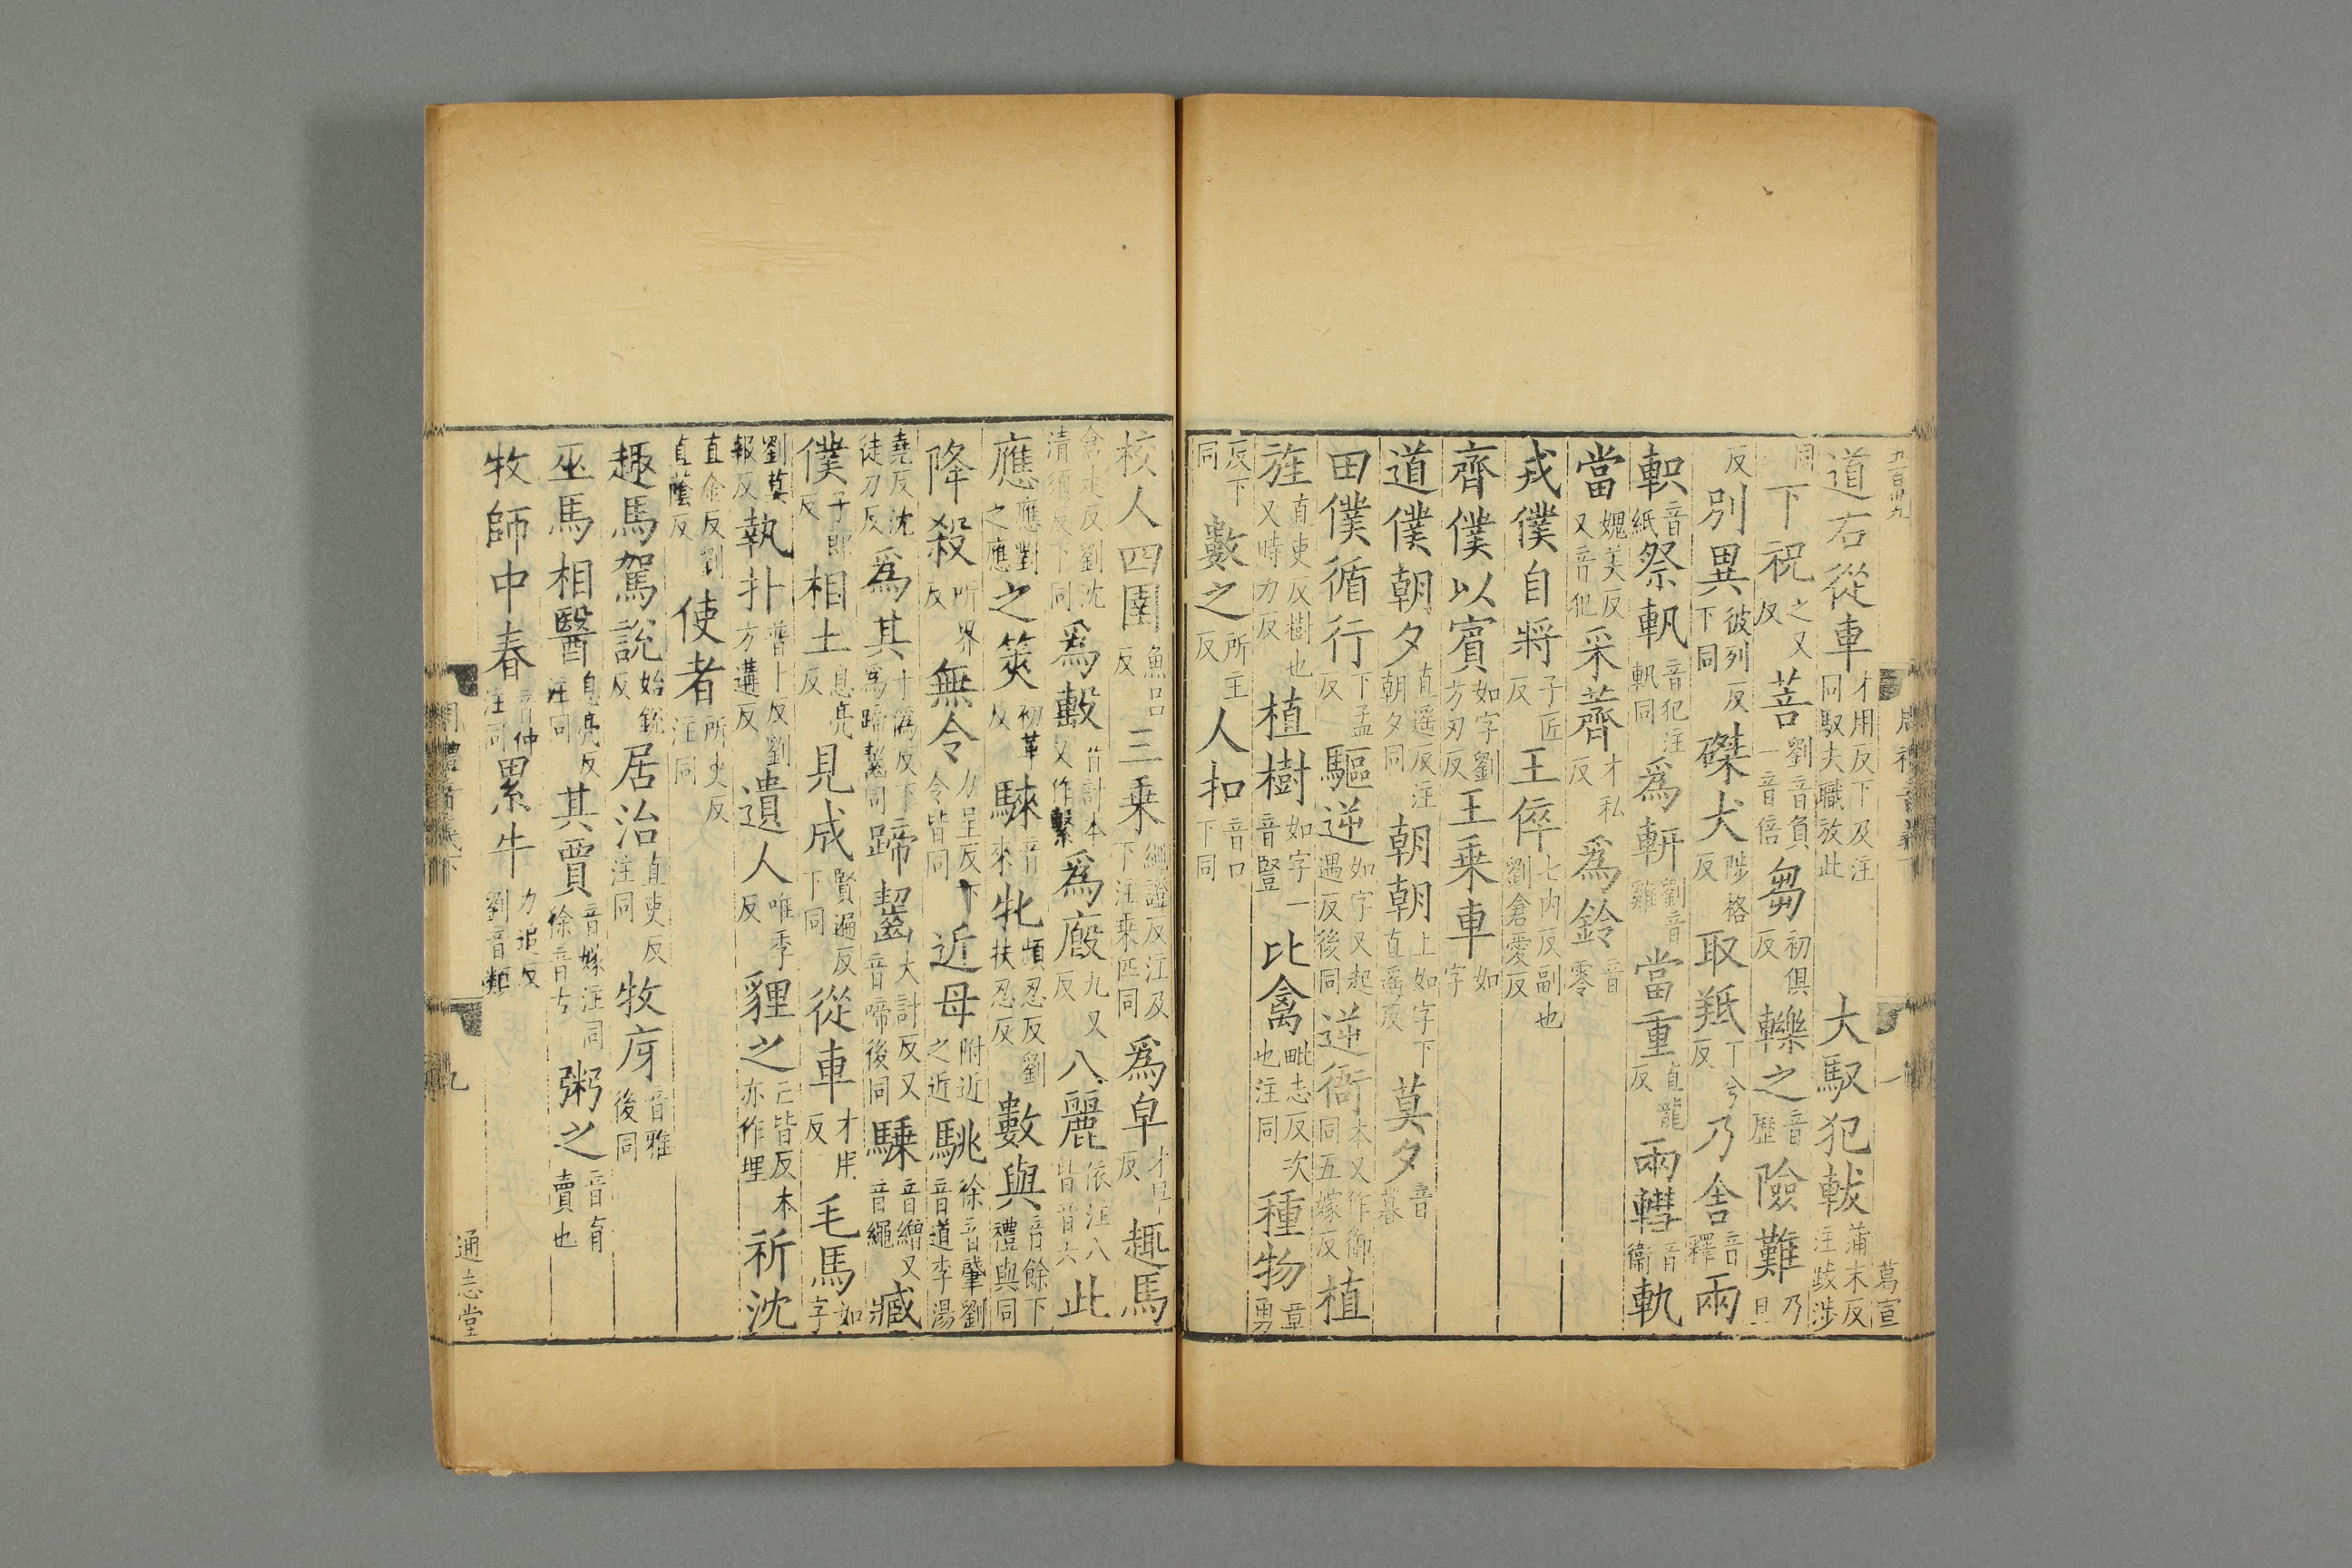 道右從車才用反下及注同馭夫職放此 大馭犯軷蒲末反注跋涉
同下祝之又反菩劉音負一音倍芻初俱反轢之音歷險難乃旦
反別異彼列反下同磔犬陟格反取羝丁兮反乃舍音釋兩
軹音紙祭軓音犯注軓同為軒劉音雞當重直龍反兩轊音衞軌
當媿美反又音犯采薺才私反為鈴音零
戎僕自將子匠反王倅七内反副也劉倉愛反
齊僕以賓如字劉芳刃反王乗車如字
道僕朝夕直遥反注朝夕同朝朝上如字下直遥反莫夕音暮
田僕循行下孟反驅逆如字又起遇反後同逆衙本又作御同五嫁反植
旌直吏反樹也又時力反植樹如字一音豎比禽毗志反次也注同種物章勇
反下同數之所主反人扣音口下同
校人四圉魚口反三乗繩證反注及下注乗匹同為皁才早反趣馬
倉走反劉沈清須反下同為轚音計本又作繫為廄九又反八麗依注八皆音六此
應應對之應之筴初革反騋音來牝頻忍反劉扶忍反數與音餘下禮與同
降殺所界反無令力呈反下令皆同近母附近之近駣徐音肇劉音道李湯
堯反沈徒刀反為其于偽反下為蹄齧同蹄齧大計反又音啼後同騬音繒又音繩臧
僕子郎反相土息亮反見成賢遍反下同從車才用反毛馬如字
劉莫報反執扑普卜反劉方遘反遺人唯季反貍之亡皆反本亦作埋祈沈
直金反劉直蔭反使者所吏反注同
趣馬駕說始銳反居治直吏反注同牧庌音雅後同
巫馬相醫息亮反注同其賈音嫁注同徐音古粥之音育賣也
牧師中春音仲注同累牛力追反劉音類
通志堂
九
葛宣